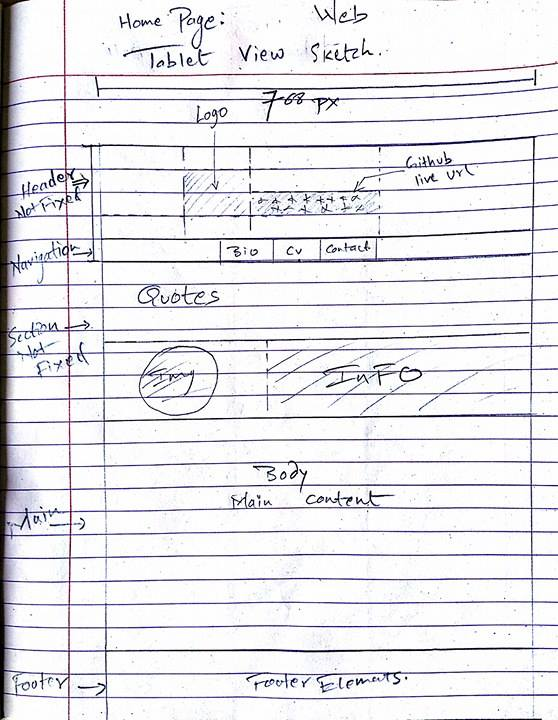 Home Page: Web
Tablet View Sketch.
768 px
Logo
Github
live url
Header
Not Fixed
Navigation
Bio Cv Contact
Quotes
Section
Not
Fixed
Img InFO
Body
Main content
Main
Footer
Footer Elemats.